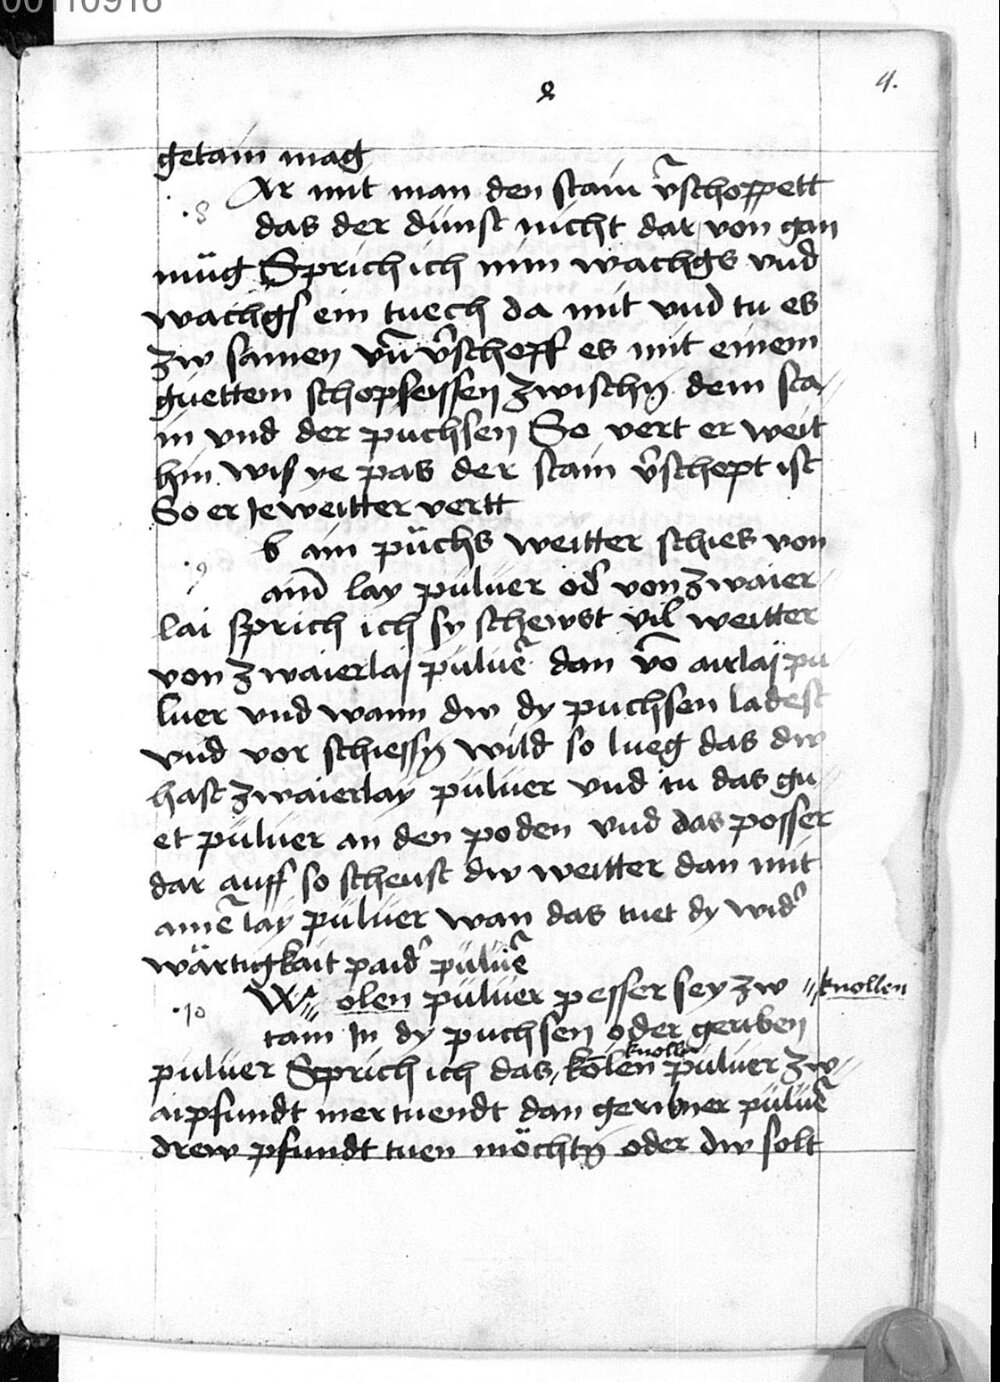 00110916
2
4.
getain mag
.8 Ar mit man den stain v̄schoppett
das der dunst nicht dar von gan
müg Sprich ich nim wachgs vnd
wachgs ein tuech da mit vnd tu es
zw samen vn̄ v̄schopff es mit einem
guettem schopfeissen zwischn̄ dem sta//
in vnd der puchsen So vert er weit
hin wis ye pas der stain v̄schopt ist
So er Ie weitter vertt
.9 b ain püchs weitter schies von
ain̄ lay puluer od̄ von zwaier//
lai sprich ich sy schewst vil weitter
von zwaierlaj puluē dan vō airlaij pu
luer vnd wann dw dy puchsen ladest
vnd vor schiessn̄ wild so lueg das dw
hast zwaierlay puluer vnd tu das gu//
et puluer an den poden vnd das posser
dar auff so scheust dw weitter dan mit
ainē lay puluer wan das tuet dy wid̄
wärtigkait paid̄ puluē
.10 W olen puluer pesser sey zw // knollen
tain In dy puchsen oder geriben
knollen
puluer Sprich ich das kolen puluer zw//
ai pfundt mer tuendt dan geribner puluē
drew pfundt tuen möchtn̄ oder dw solt